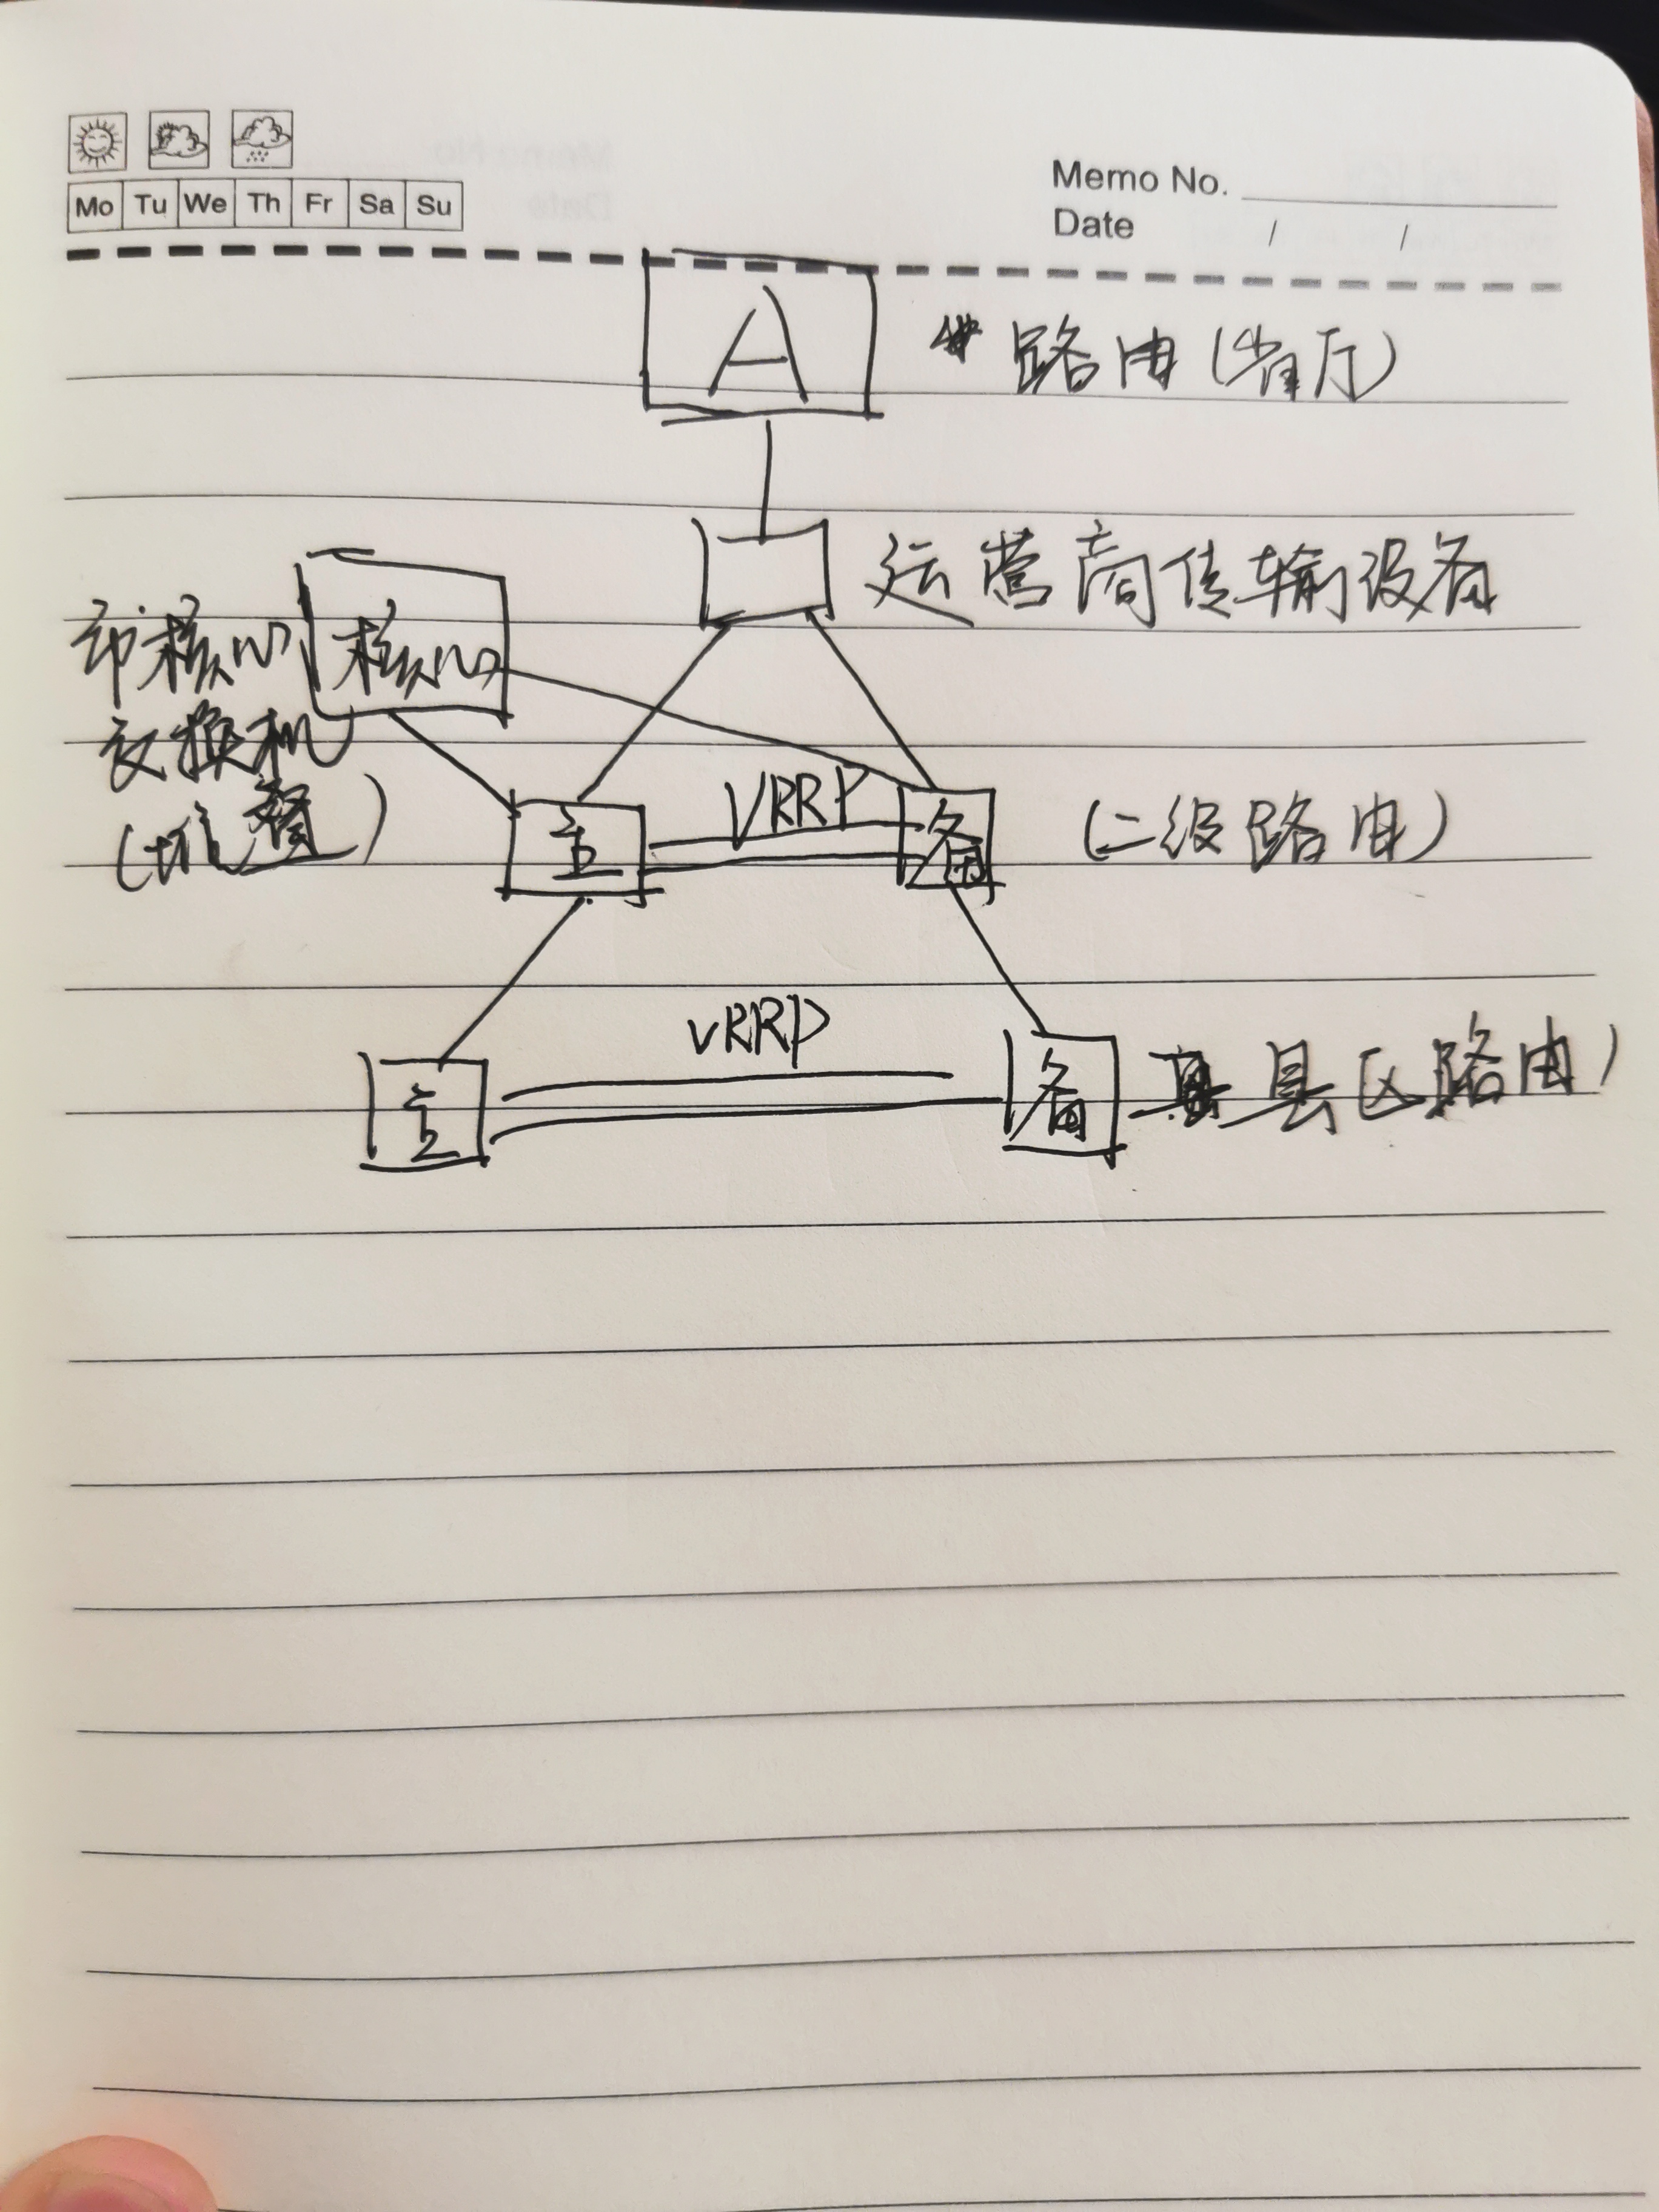 Mo Tu We Th Fr Sa Su
Memo No.
Date / /
A
路由(省厅)
运营商传输设备
市核心
核心
交换机
(堆叠)
主
VRRP
备
(二级路由)
主
VRRP
备
县区路由)